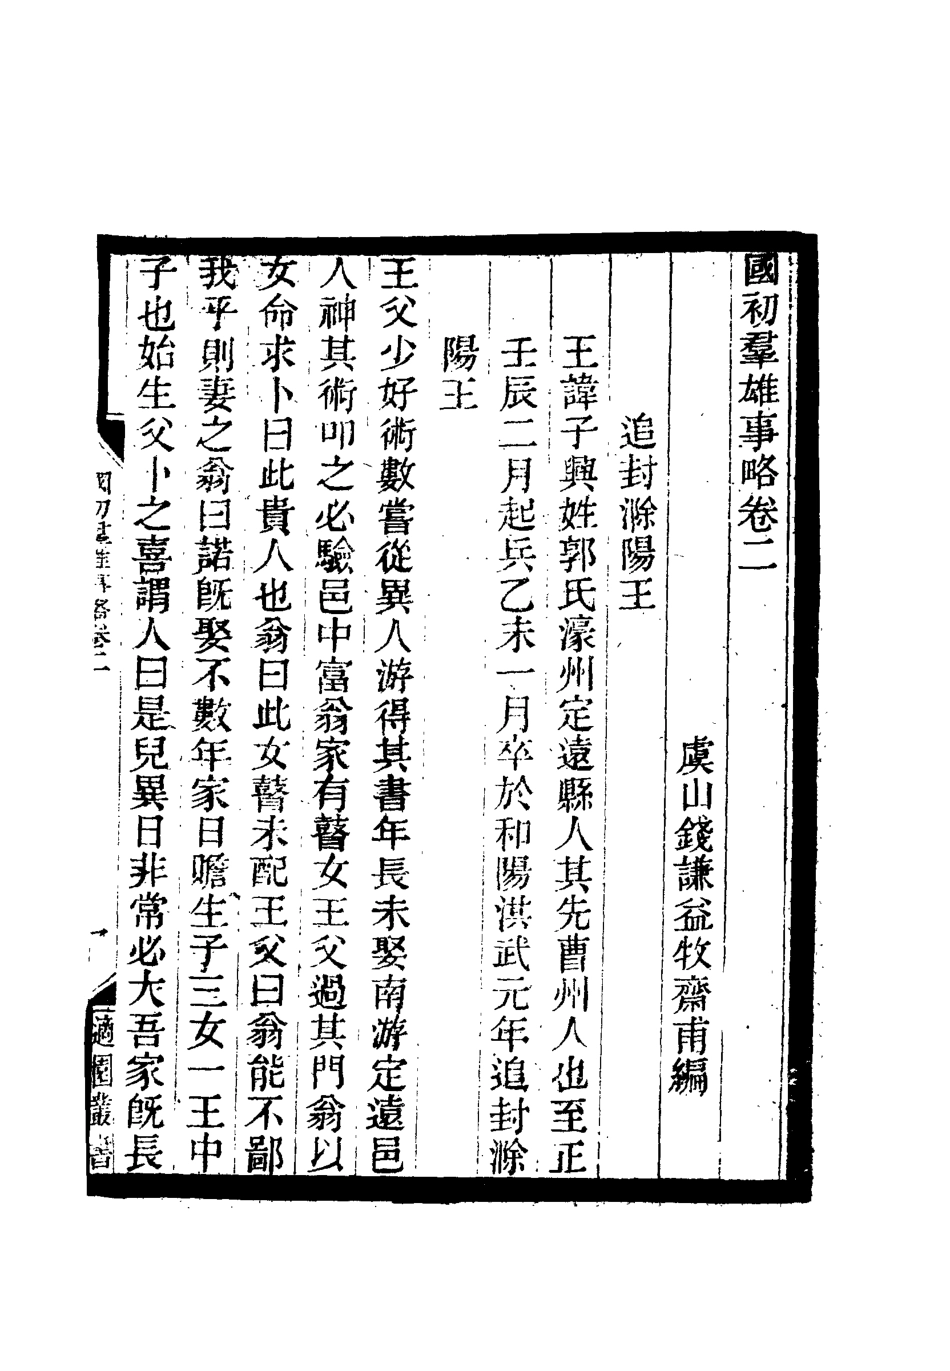 國初羣雄事略卷二
虞山錢謙益牧齋甫編
追封滁陽王
王諱子興姓郭氏濠州定遠縣人其先曹州人也至正
壬辰二月起兵乙未一月卒於和陽洪武元年追封滁
陽王
王父少好術數嘗從異人游得其書年長未娶南游定遠邑
人神其術叩之必驗邑中富翁家有瞽女王父過其門翁以
女命求卜曰此貴人也翁曰此女瞽未配王父曰翁能不鄙
我乎則妻之翁曰諾旣娶不數年家日贍生子三女一王中
子也始生父卜之喜謂人曰是兒異日非常必大吾家旣長
國初羣雄事略卷二
適園叢書